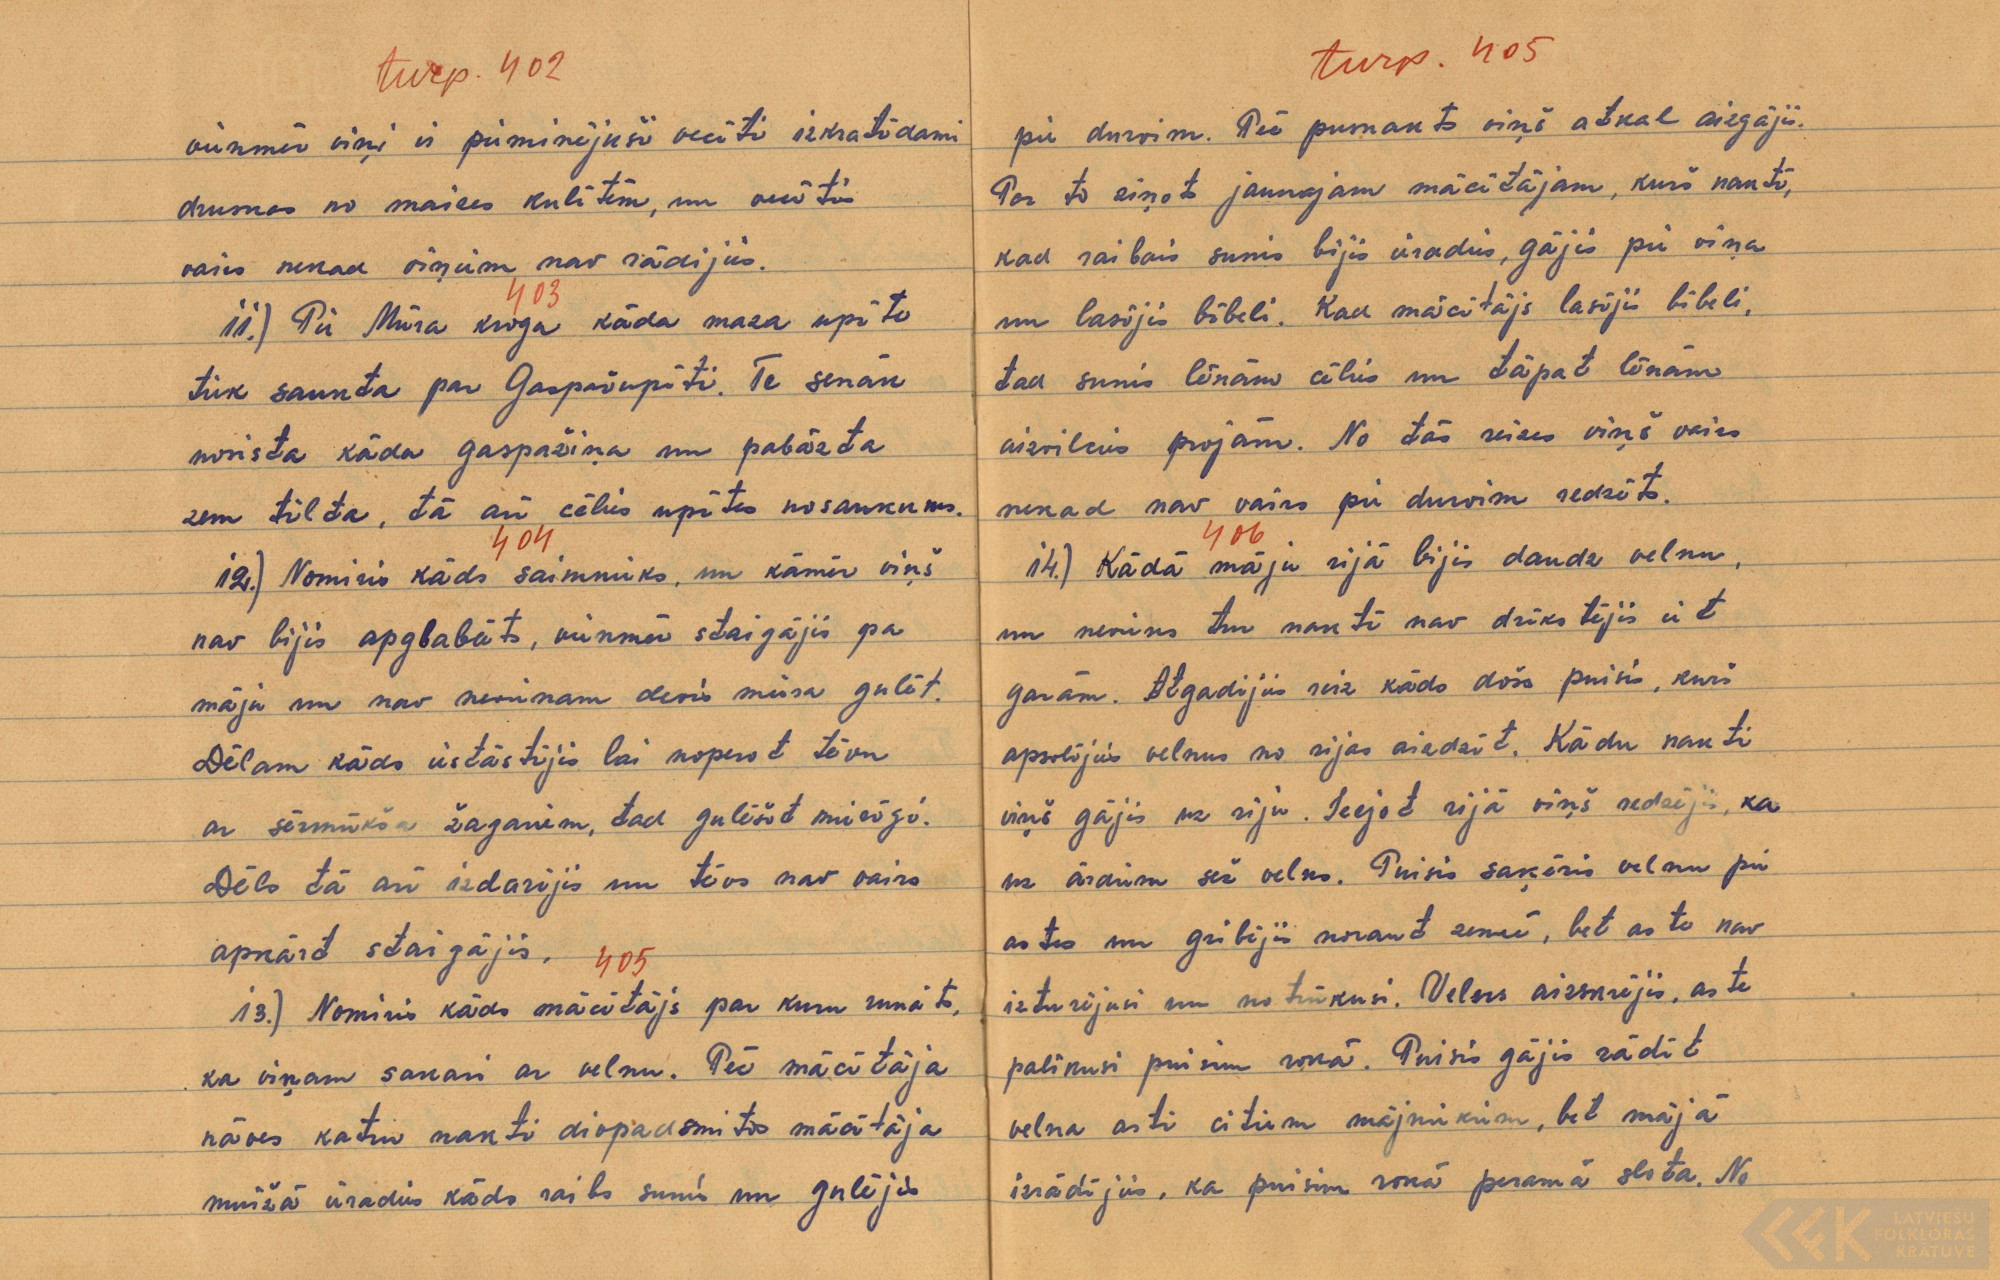 turp. 402
vienmēr viņi ir pieminējuši vecīti izkratīdami
drumas no maizes kulītēm, un vecītis
vairs nekad viņiem nav rādijies.
403
11.) Pie Mūra kroga kāda maza upīte
tiek saukta par Gaspažupīti. Te senāk
norista kāda gaspažiņa un pabāzta
zem tilta, tā arī cēlies upītes nosaukums.
404
12.) Nomiris kāds saimnieks, un kāmēr viņš
nav bijis apglabāts, vienmēr staigājis pa
māju un nav nevienam devis miera gulēt.
Dēlam kāds iestāstījis lai noperot tēvu
ar sērmūkša žagariem, tad gulēšot mierīgi.
Dēls tā arī izdarījis un tēvs nav vairs
apkārt staigājis.
405
13.) Nomiris kāds mācītājs par kuru runāts,
ka viņam sakari ar velnu. Pēc mācītāja
nāves katru nakti divpadsmitos mācītāja
muižā ieradies kāds raibs sunis un gulējis
turp. 405
pie durvim. Pēc pusnakts viņš atkal aizgājis.
Par to ziņots jaunajam mācītājam, kurš naktī,
kad raibais sunis bijis ieradies, gājis pie viņa
un lasījis bībeli. Kad mācītājs lasījis bībeli,
tad sunis lēnām cēlies un tāpat lēnām
aizvilcies projām. No tās reizes viņš vairs
nekad nav vairs pie durvim redzēts.
406
14.) Kādā māju rijā bijis daudz velnu,
un neviens tur naktī nav drīkstējis iet
garām. Atgadījies reiz kāds došs puisis, kurš
apsolījies velnus no rijas aizdzīt. Kādu nakti
viņš gājis uz riju. Ieejot rijā viņš redzējis, ka
uz ārdiem sēž velns. Puisis saķēris velnu pie
astes un gribējis noraut zemē, bet aste nav
izturējusi un notrūkusi. Velns aizskrējis, aste
palikusi puisim rokā. Puisis gājis rādīt
velna asti citiem mājniekiem, bet mājā
izrādījies, ka puisim rokā peramā slota. No
LATVIEŠU
FOLKLORAS
KRĀTUVE